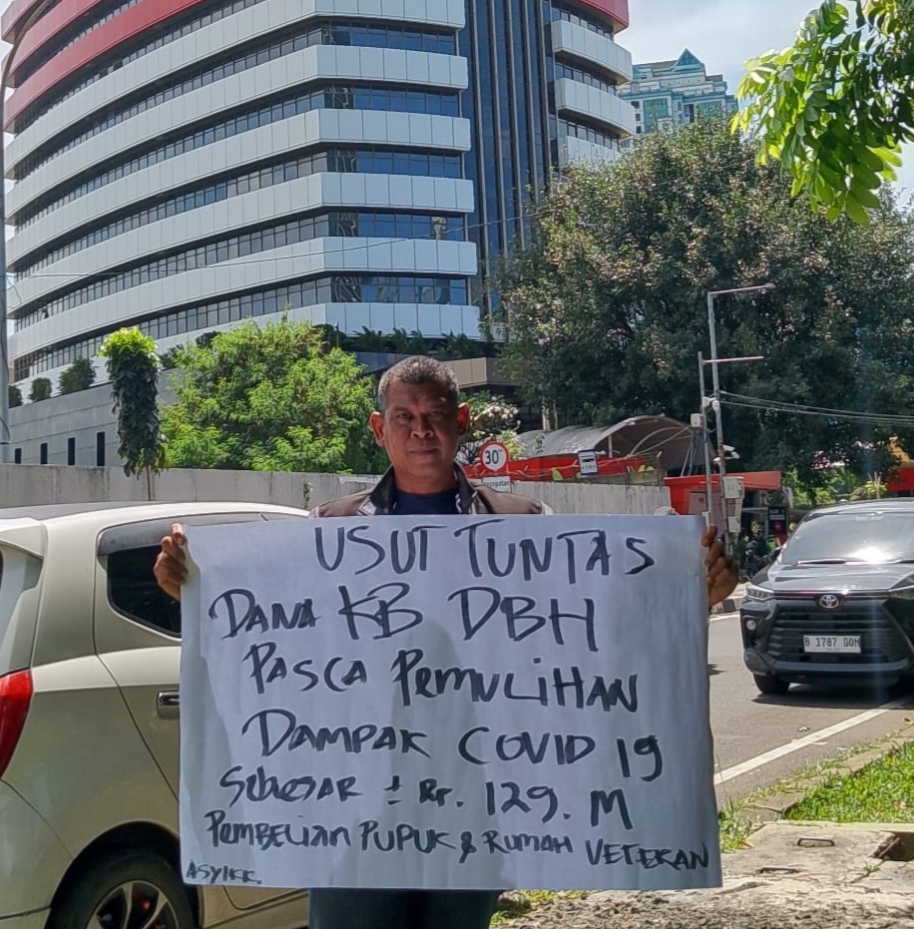 30
USUT TUNTAS
DANA KB DBH
PASCA PEMULIHAN
DAMPAK COVID 19
SEBESAR ± Rp. 129. M
PEMBELIAN PUPUK & RUMAH VETERAN